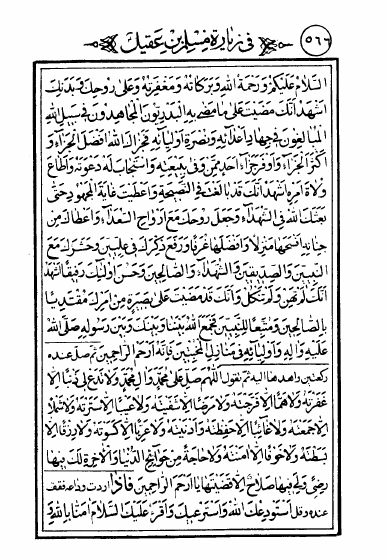 في زيارة مسلم بن عقيل
٥٦٦
السلام عليكم ورحمة الله وبركاته ومغفرته وعلى روحك وبدنك
اشهد انك مضيت على ما مضى به البدريون المجاهدون في سبيل الله
المبالغون في جهاد اعدائه ونصرة اوليائه فجزاك الله افضل الجزاء و
اكثر الجزاء واوفر جزاء احد ممن وفى ببيعته واستجاب له دعوته واطاع
ولاة امره اشهد انك قد بالغت في النصيحة واعطيت غاية المجهود حتى
بعثك الله في الشهداء وجعل روحك مع ارواح السعداء واعطاك من
جنانه افسحها منزلا وافضلها غرفا ورفع ذكرك في عليين وحشرك مع
النبيين والصديقين والشهداء والصالحين وحسن اولئك رفيقا اشهد
انك لم تهن ولم تنكل وانك قد مضيت على بصيرة من امرك مقتديا
بالصالحين ومتبعا للنبيين فجمع الله بيننا وبينك وبين رسوله صلى الله
عليه واله واوليائه في منازل المخبتين فانه ارحم الراحمين ثم صل عنده
ركعتين واهدهما اليه ثم تقول اللهم صل على محمد وال محمد ولا تدع لي ذنبا الا
غفرته ولا هما الا فرجته ولا مرضا الا شفيته ولا عيبا الا سترته ولا شملا
الا جمعته ولا غائبا الا حفظته وادنيته ولا عريا الا كسوته ولا رزقا الا
بسطته ولا خوفا الا امنته ولا حاجة من حوائج الدنيا والاخرة لك فيها
رضى ولي فيها صلاح الا قضيتها يا ارحم الراحمين فاذا اردت وداعه فقف
عنده وقل استودعك الله واسترعيك واقرء عليك السلام امنا بالله و